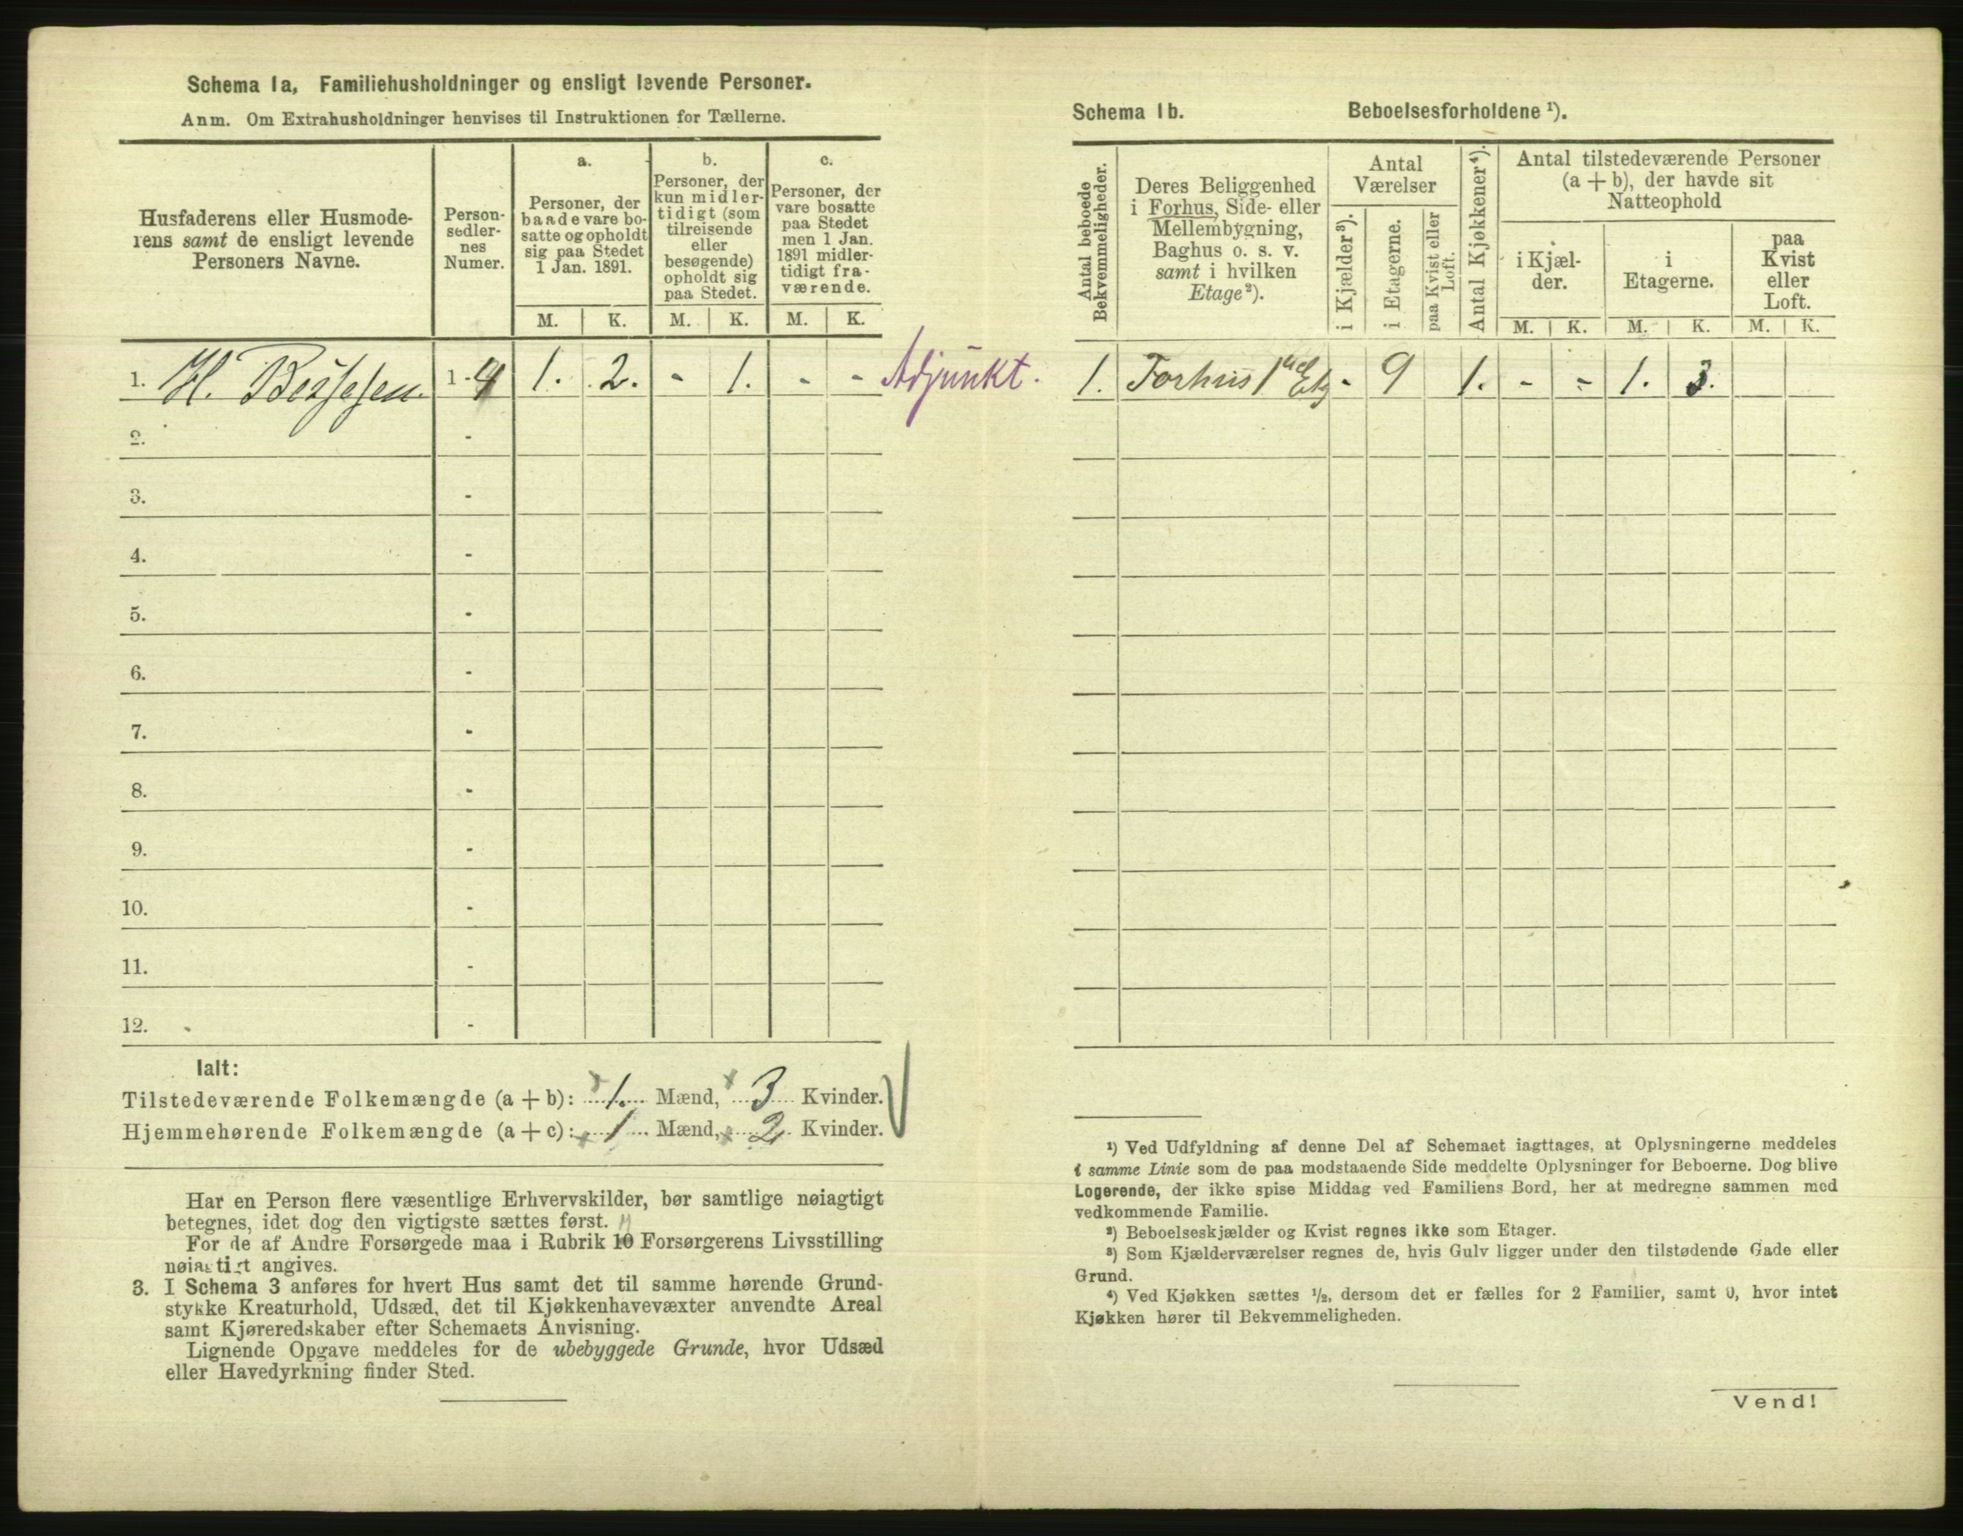 Schema 1a, Familiehusholdninger og ensligt levende Personer.
Anm. Om Extrahusholdninger henvises til Instruktionen for Tællerne.
Husfaderens eller Husmode-
rens samt de ensligt levende
Personers Navne.
Person-
sedler-
nes
Numer.
a.
Personer, der
baade vare bo-
satte og opholdt
sig paa Stedet
1 Jan. 1891.
b.
Personer, der
kun midler-
tidigt (som
tilreisende
eller
besøgende)
opholdt sig
paa Stedet.
c.
Personer, der
vare bosatte
paa Stedet
men 1 Jan.
1891 midler-
tidigt fra-
værende.
M. K. M. K. M. K.
1. H. Bessesen. 1-4 1. 2. - 1. - - Adjunkt.
2. -
3. -
4. -
5. -
6. -
7. -
8. -
9. -
10. -
11. -
12. -
Ialt:
Tilstedeværende Folkemængde (a + b): 1. Mænd, 3 Kvinder.
Hjemmehørende Folkemængde (a + c): 1 Mænd, 2 Kvinder.
Har en Person flere væsentlige Erhvervskilder, bør samtlige nøiagtigt
betegnes, idet dog den vigtigste sættes først.
For de af Andre Forsørgede maa i Rubrik 10 Forsørgerens Livsstilling
nøiagtigt angives.
3. I Schema 3 anføres for hvert Hus samt det til samme hørende Grund-
stykke Kreaturhold, Udsæd, det til Kjøkkenhavevæxter anvendte Areal
samt Kjøreredskaber efter Schemaets Anvisning.
Lignende Opgave meddeles for de ubebyggede Grunde, hvor Udsæd
eller Havedyrkning finder Sted.
Schema 1b. Beboelsesforholdene ¹).
Antal beboede
Bekvemmeligheder.
Deres Beliggenhed
i Forhus, Side- eller
Mellembygning,
Baghus o. s. v.
samt i hvilken
Etage²).
Antal
Værelser
i Kjælder³).
i Etagerne.
paa Kvist eller
Loft.
Antal Kjøkkener⁴).
Antal tilstedeværende Personer
(a + b), der havde sit
Natteophold
i Kjæl-
der.
i
Etagerne.
paa
Kvist
eller
Loft.
M. K. M. K. M. K.
1. Forhus 1ste Etg - 9 1. - - 1. 3.
¹) Ved Udfyldning af denne Del af Schemaet iagttages, at Oplysningerne meddeles
i samme Linie som de paa modstaaende Side meddelte Oplysninger for Beboerne. Dog blive
Logerende, der ikke spise Middag ved Familiens Bord, her at medregne sammen med
vedkommende Familie.
²) Beboelseskjælder og Kvist regnes ikke som Etager.
³) Som Kjælderværelser regnes de, hvis Gulv ligger under den tilstødende Gade eller
Grund.
⁴) Ved Kjøkken sættes ¹/₂, dersom det er fælles for 2 Familier, samt 0, hvor intet
Kjøkken hører til Bekvemmeligheden.
Vend!